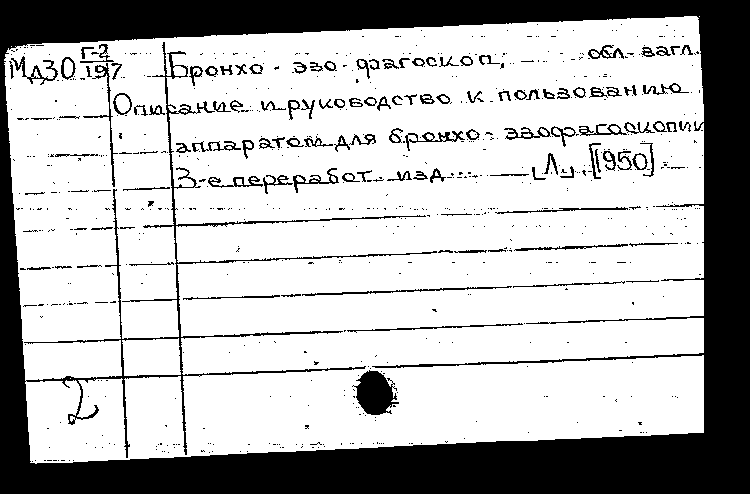 Мд30 Г-2/197 Бронхо-эзо-фагоскоп; обл. загл.
Описание и руководство к пользованию
аппаратом для бронхо-эзофагоскопии
3-е переработ. изд... [Л.], [1950].
2